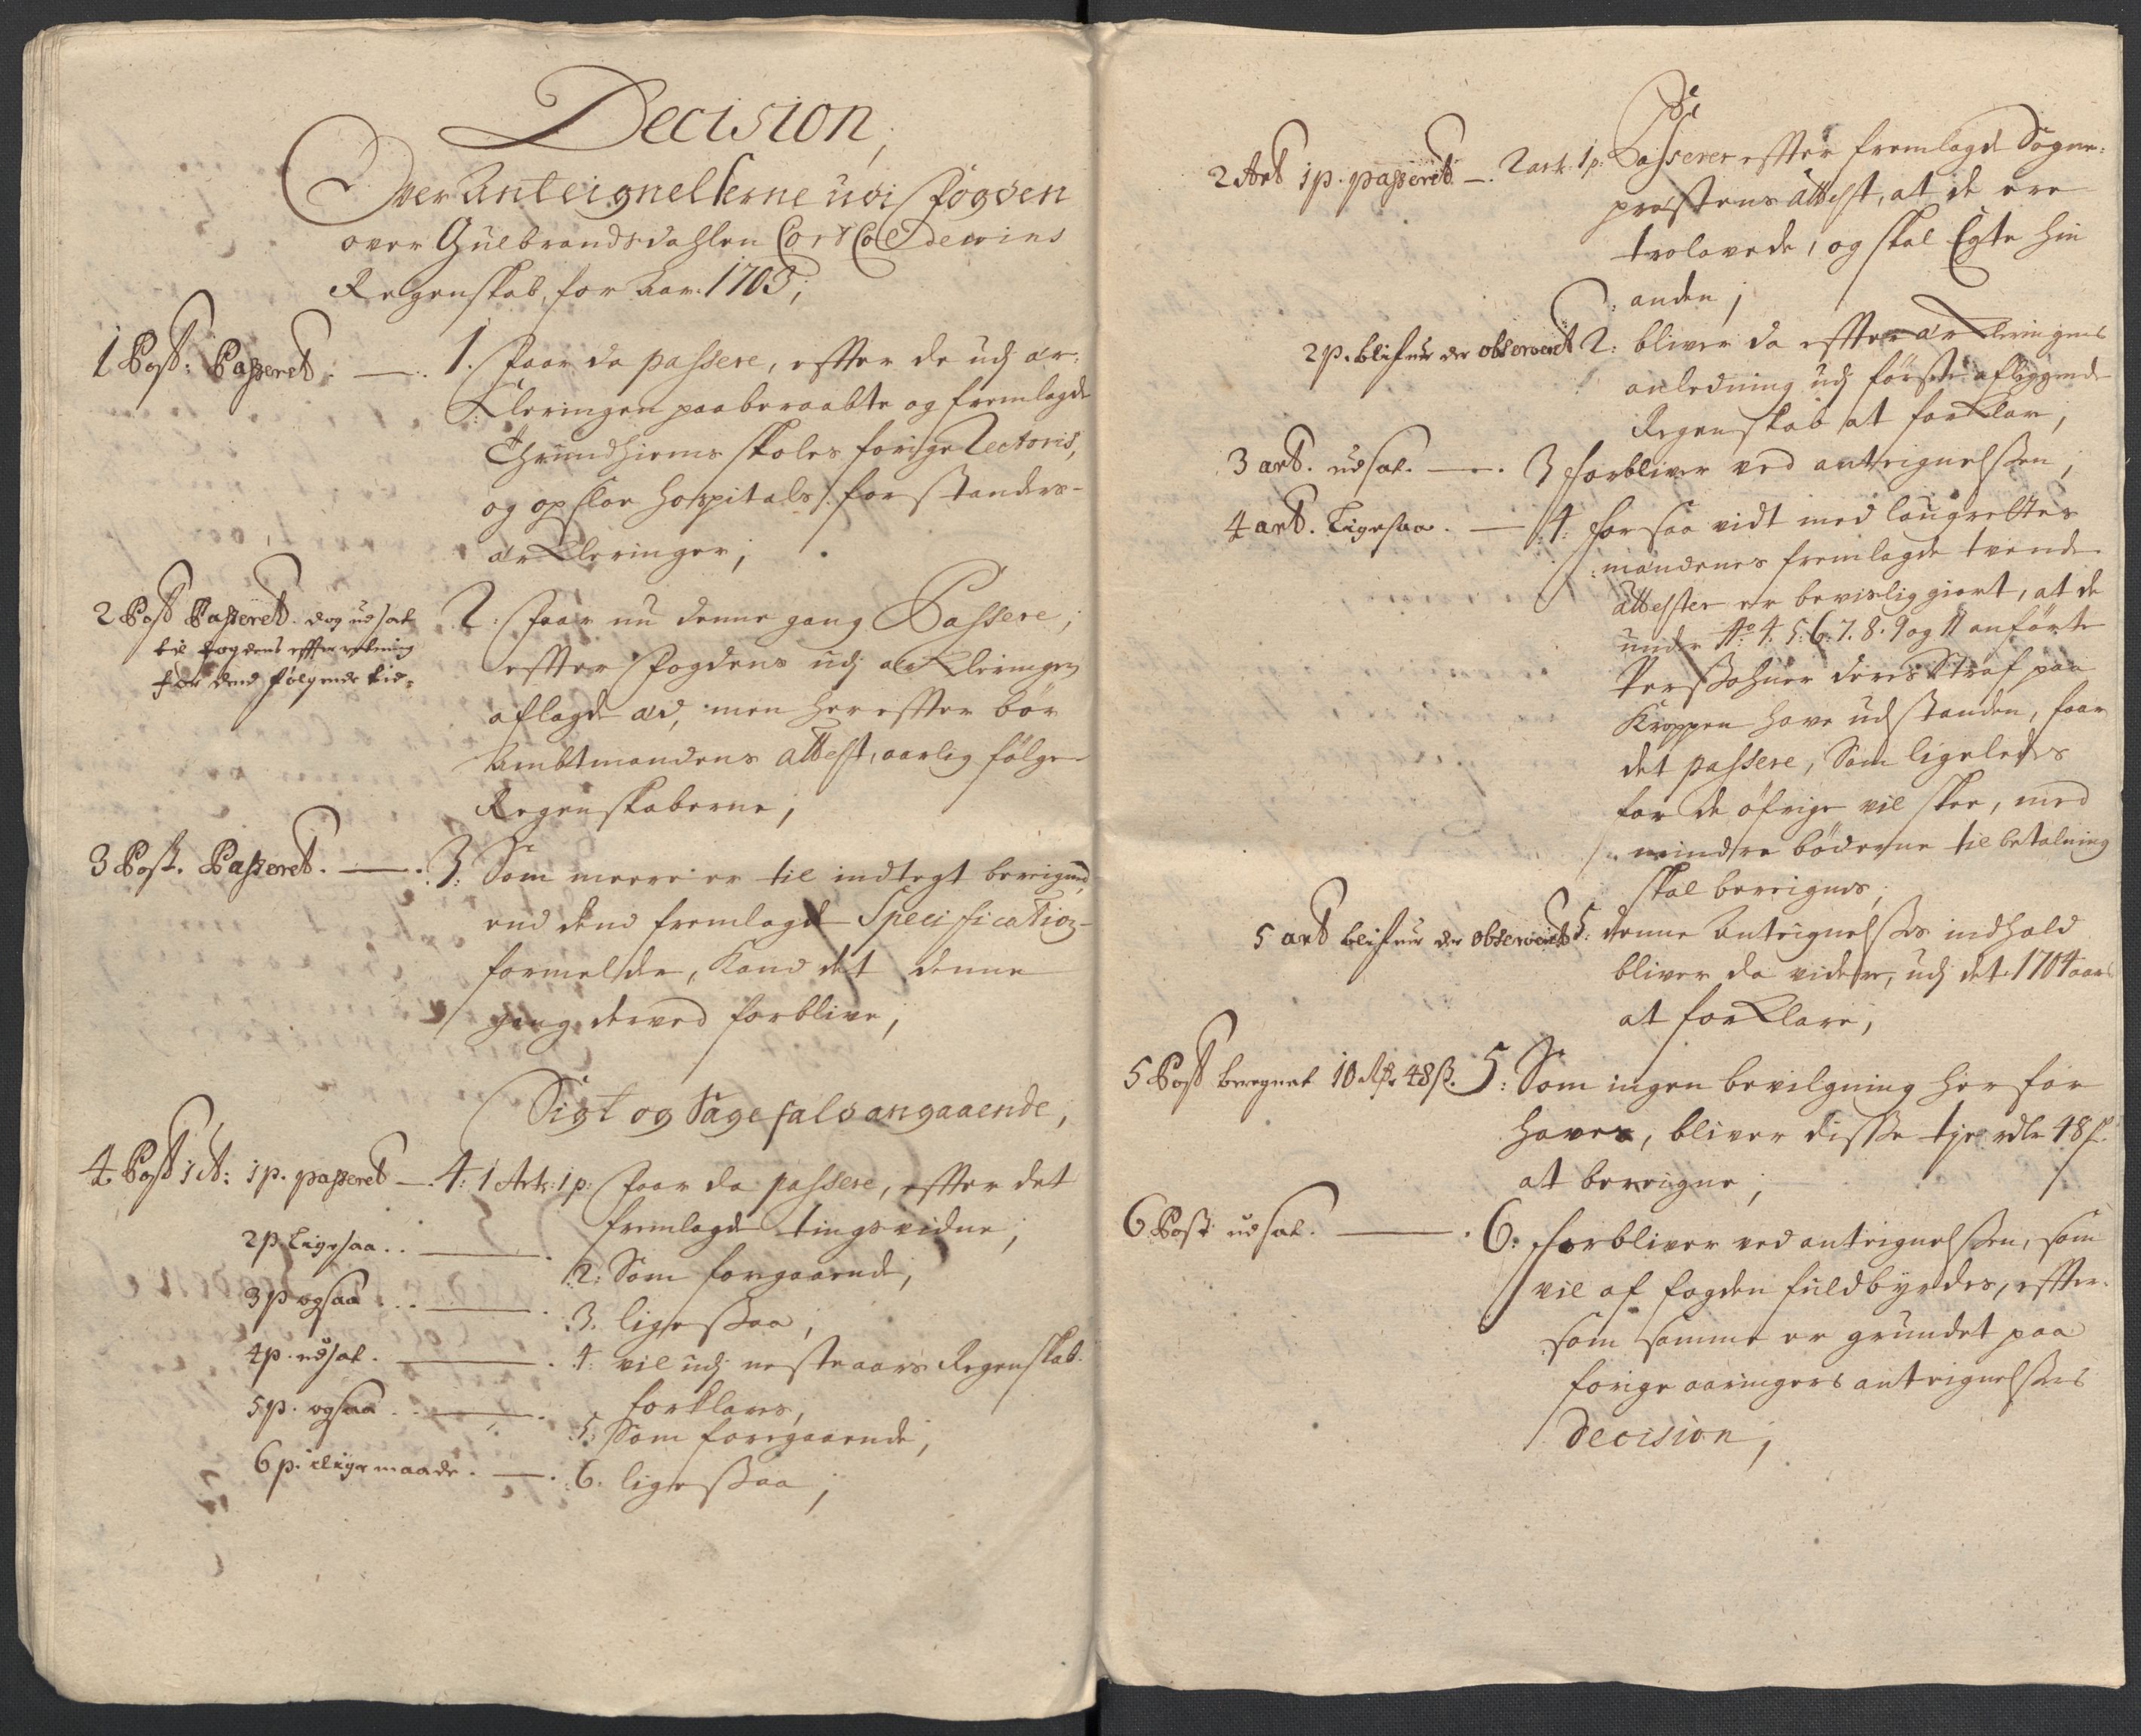 Decision,
Over Anteignelserne udi fogden
over Gulbrandsdahlen Cort Coldewins
Regenskab, for Aar 1703,
1 Post: Passeret. —.
1. faar da passere, effter de udj er¬
:Kleringen paaberaabte og fremlagde
Thrundhiems skoles forige Rectoris,
og opsloe Hospitals forstanders-
erKleringer;
2 Post Passeret. dog udsat
til fogdens effterretning
for dend følgende tid.
2: faar nu denne gang Passere,
effter fogdens udj erKleringen
aflagde æd, men her effter bör
Ambtmandens attest, aarlig fölge
Regenskaberne,
3 Post. Passeret. —.
3: Som meere er til indtegt bereignet,
end dend fremlagde Specification
formelder, Kand det denne
gang derved forblive,
Sigt og Sagefals angaaende,
4 Post 1 A: 1 p. passeret —.
4: 1 Art: 1 p: faar da passere, effter det
fremlagde tingsvidne;
2 p. Ligesaa . . —
2: Som forgaaende,
3 p ogsaa . . . — .
3. ligessaa,
4 p. udsat . — .
4: vil udj neste aars Regenskab.
forklares,
5 p. ogsaa . . — .
5. Som foregaaende,
6 p. i lige maade. —.
6. ligessaa;
2 Art 1 p. passeret —.
2 art. 1 p: Passerer effter fremlagde Sogne¬
prestens attest, at de ere
trolovede, og skal Egte hin
: anden;
2 p. blifuer der observeret
2: bliver da effter erKleringens
anledning udj förste aflæggende
Regenskab at forKlare,
3 art. udsat. —.
3 forbliver ved anteignelssen,
4 art. Ligesaa. —
4: for saa vidt med laugrettes
:mandenes fremlagde tvende
attester er bevislig giort, at de
under No 4. 5. 6. 7. 8. 9 og 11 anförte
Perssohner deris Straf paa
Kroppen have udstanden, faar
det passere, Som ligeledes
for de öfrige vil skee, med
mindre böderne til betalning
skal bereignes;
5 art blifuer der observeret
5: denne Anteignelsses indhold
bliver da videre, udj det 1704 aars
at forKlare,
5 Post beregnet 10 Rdr 48 ß.
5: Som ingen bevilgning her for
haves, bliver disse tje rdlr 48 ß.
at bereigne;
6 Post udsat. — .
6: forbliver ved anteignelssen, som
vil af fogden fuldbyrdes, effter¬
som samme er grundet paa
forige aaringers anteignelsses
Decision;